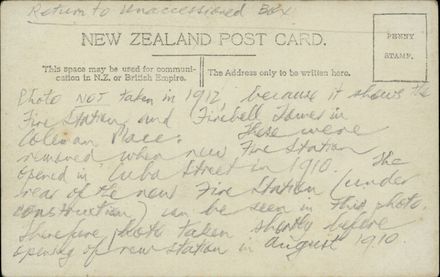 Return to Unaccessioned Box
NEW ZEALAND POST CARD.
PENNY
STAMP.
This space may be used for communi-
cation in N.Z. or British Empire.
The Address only to be written here.
Photo NOT taken in 1912, because it shows the
Fire Station and Firebell Tower in
Coleman Place. These were
removed when new Fire Station
opened in Cuba Street in 1910. The
rear of the new Fire Station (under
construction) can be seen in this photo.
Therefore photo taken shortly before
opening of new station in August 1910.